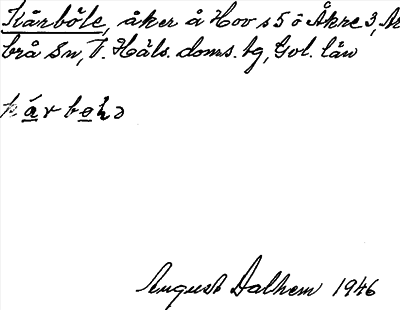 Kårböle, åker å Hov s 5 ö Åkre 3, Ar
brå Sn, V. Häls. doms. bg, Gvl. län
August Dalhem 1946